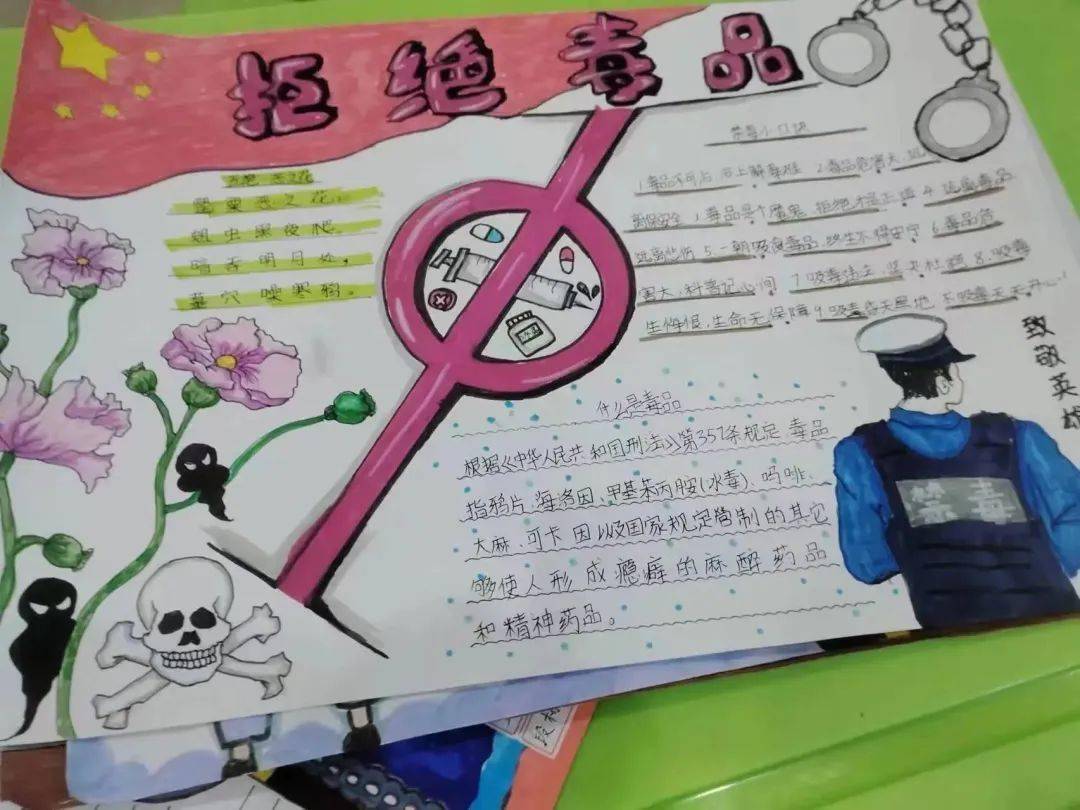 拒绝毒品
恶之花
罂粟恶之花，
蛆虫黑夜爬。
暗吞明月处，
墓穴噪寒鸦。
禁毒小口诀
1.毒品不可沾 沾上解毒难 2.毒品危害大，远
离保安全 3.毒品是个魔鬼 拒绝才是正道 4.远离毒品
远离悲伤 5.一朝吸食毒品，终生不得安宁 6.毒品危
害大，科普记心间 7.吸毒违法，坚决杜绝 8.吸毒
生悔恨，生命无保障 9.吸毒昏天黑地 不吸毒天天开心
致敬英雄
什么是毒品
根据《中华人民共和国刑法》第357条规定 毒品
指鸦片、海洛因、甲基苯丙胺(冰毒)、吗啡、
大麻、可卡因以及国家规定管制的其它
够使人形成瘾癖的麻醉药品
和精神药品。
禁毒